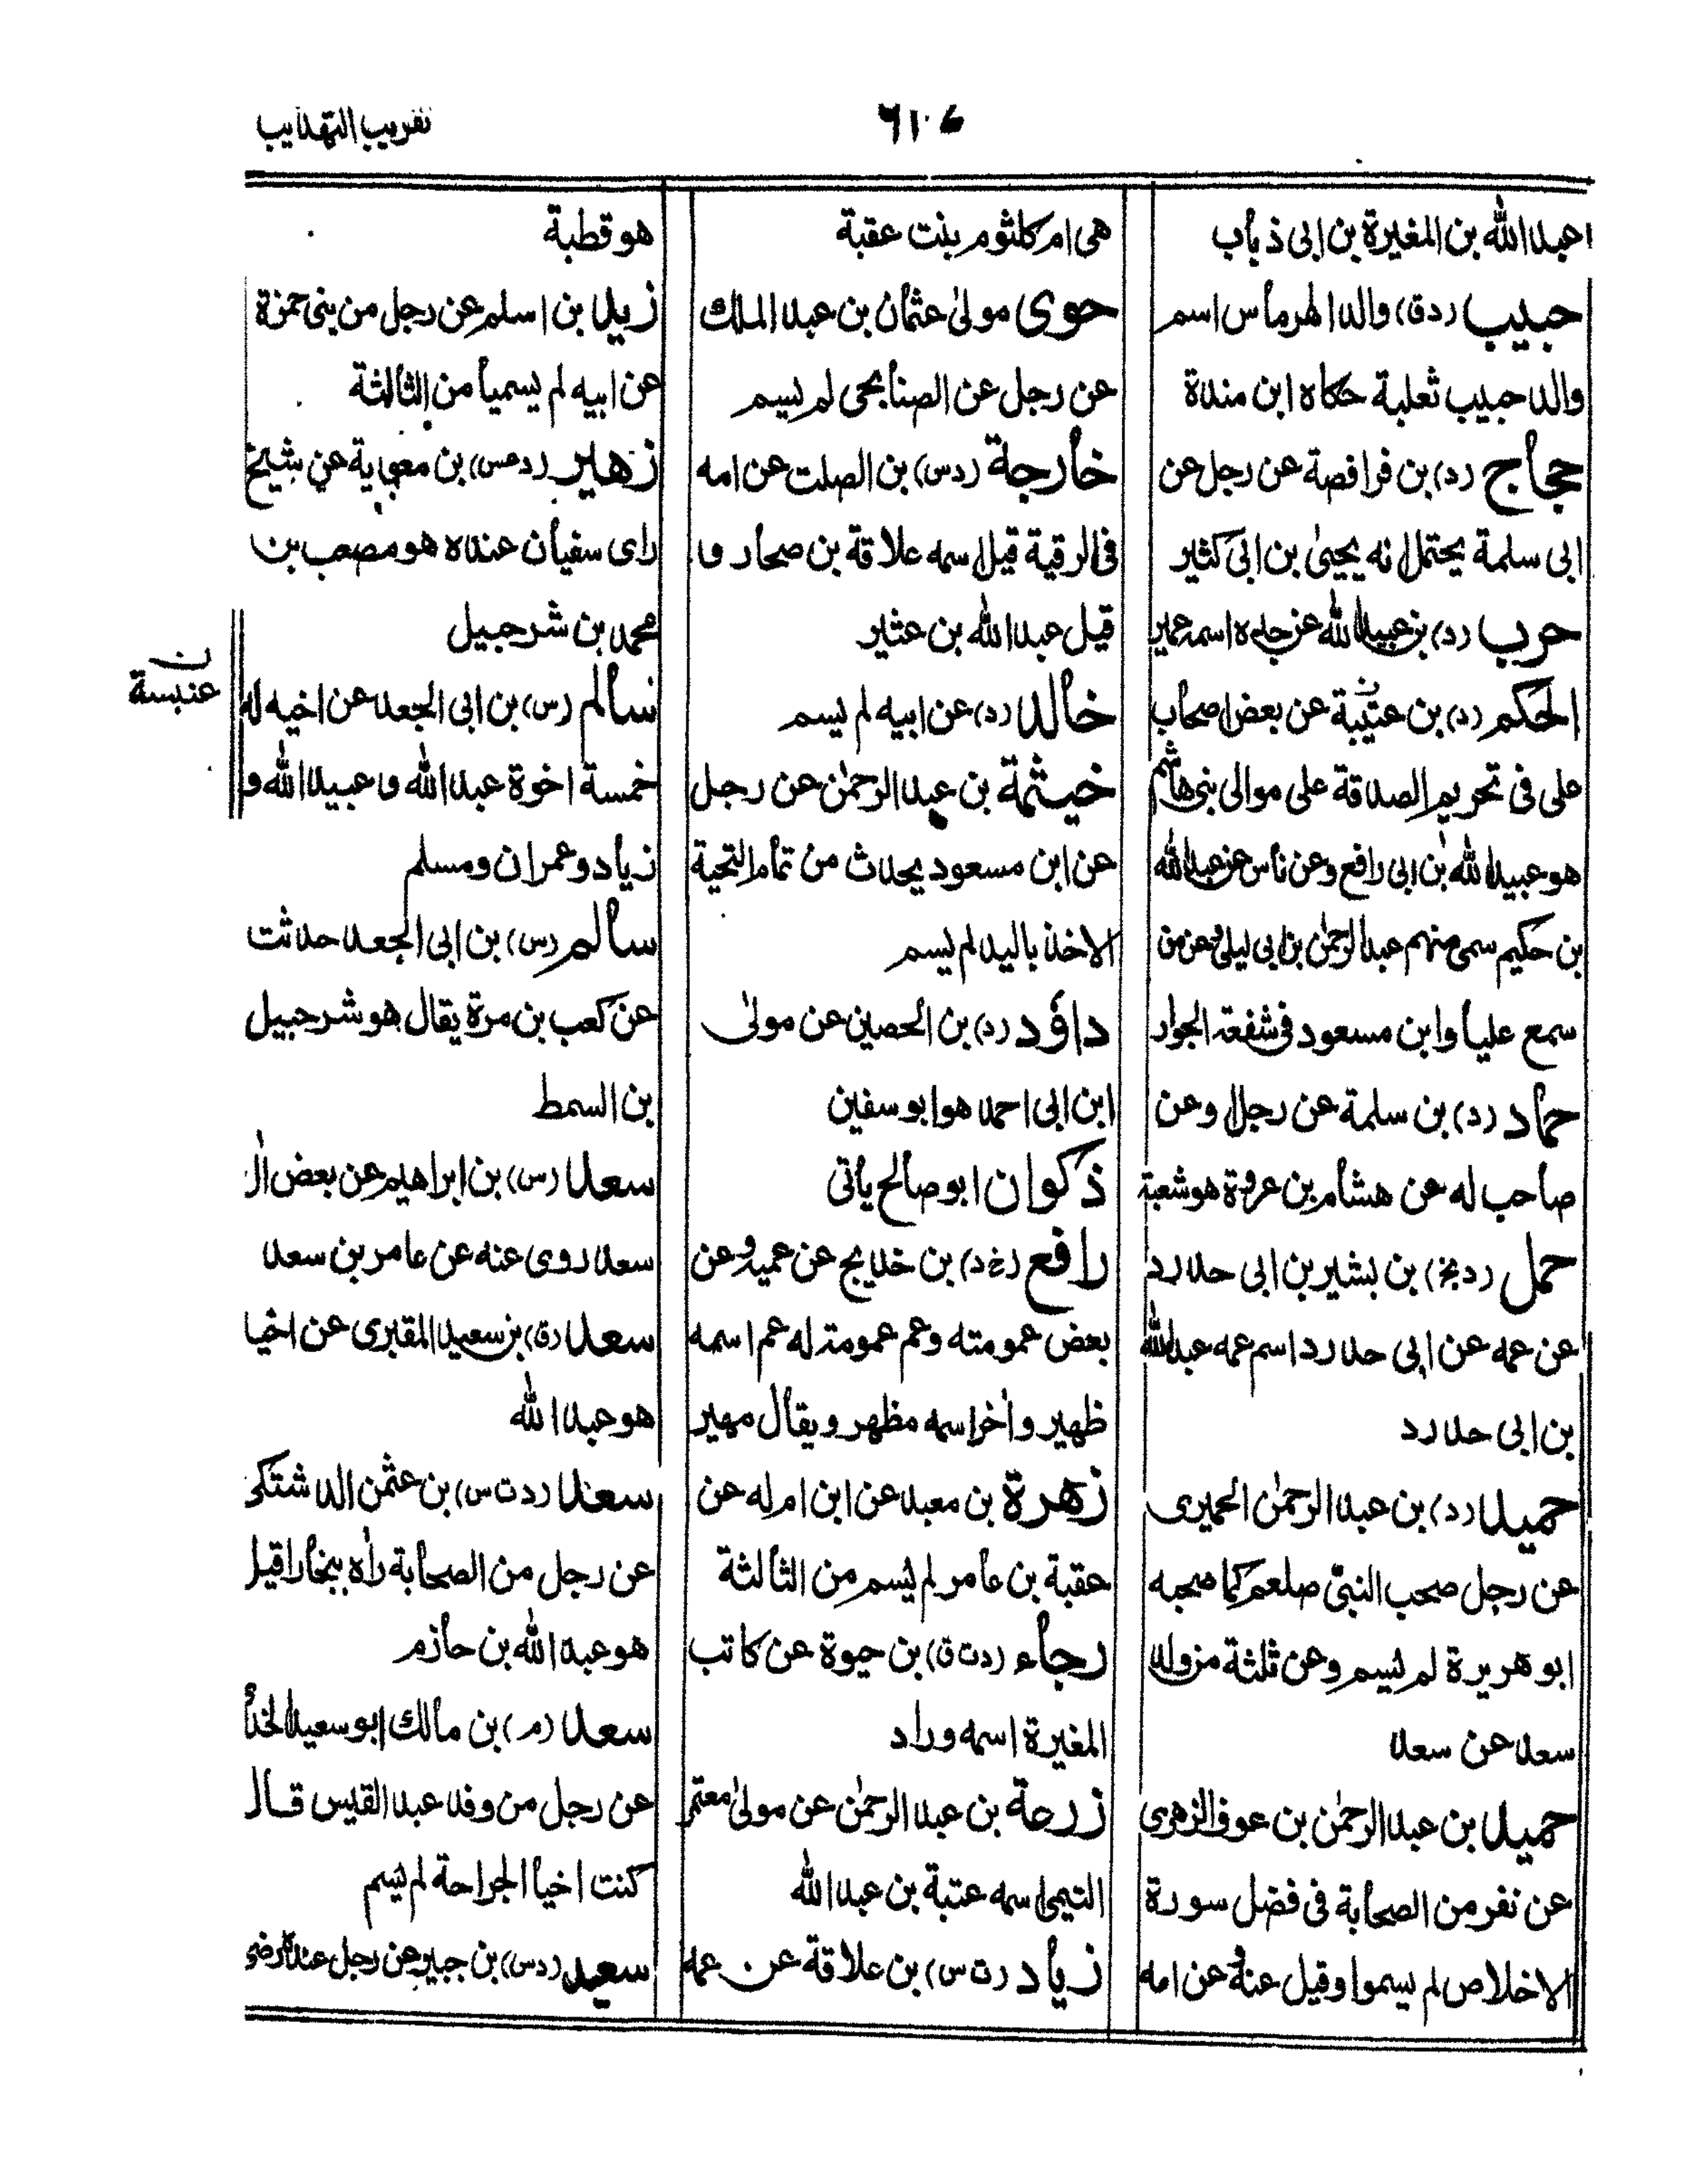 تقريب التهذيب
عبد الله بن المغيرة بن ابى ذباب
حبيب (دق) والد الهرماس اسم
والد حبيب ثعلبة حكاه ابن مندة
حجاج (د) بن فرافصة عن رجل عن
ابى سلمة يحتمل انه يحيى بن ابى كثير
حرب (د) بن عبيد الله عن جده اسمه عمير
الحكم (د) بن عتيبة عن بعض اصحاب
على فى تحريم الصدقة على موالى بنى هاشم
هو عبيد الله بن ابى رافع وعن ناس عن عبد الله
بن حكيم سمى منهم عبد الرحمٰن بن ابى ليلى وعن من
سمع عليا وابن مسعود فى شفعة الجوار
حماد (د) بن سلمة عن رجل وعن
صاحب له عن هشام بن عروة هو شعبة
حمل (دبخ) بن بشير بن ابى حدرد
عن عمه عن ابى حدرد اسم عمه عبد الله
بن ابى حدرد
حميد (د) بن عبد الرحمٰن الحميرى
عن رجل صحب النبى صلعم كما صحبه
ابو هريرة لم يسم وعن ثلثة من ولد
سعد عن سعد
حميد بن عبد الرحمٰن بن عوف الزهرى
عن نفر من الصحابة فى فضل سورة
الاخلاص لم يسموا وقيل عنه عن امه
هى ام كلثوم بنت عقبة
حوى مولىٰ عثمان بن عبد الملك
عن رجل عن الصنابحى لم يسم
خارجة (دس) بن الصلت عن امه
فى الرقية قيل اسمه علاقة بن صحار و
قيل عبد الله بن عثير
خالد (د) عن ابيه لم يسم
خيثمة بن عبد الرحمٰن عن رجل
عن ابن مسعود يحدث من تمام التحية
الاخذ باليد لم يسم
داؤد (د) بن الحصين عن مولىٰ
ابن ابى احمد هو ابو سفين
ذكوان ابو صالح يأتى
رافع (خ د) بن خديج عن عميه وعن
بعض عمومته وعم عمومته له عم اسمه
ظهير واٰخر اسمه مظهر ويقال مهير
زهرة بن معبد عن ابن ام له عن
عقبة بن عامر لم يسم من الثالثة
رجاء (دت ق) بن حيوة عن كاتب
المغيرة اسمه وراد
زرعة بن عبد الرحمٰن عن مولىٰ معتمر
التيمى اسمه عتبة بن عبد الله
زياد (ت س) بن علاقة عن عمه
هو قطبة
زيد بن اسلم عن رجل من بنى حمزة
عن ابيه لم يسميا من الثالثة
زهير (دعس) بن معوية عن شيخ
راى سفيان عنده هو مصعب بن
محمد بن شرحبيل
سالم (س) بن ابى الجعد عن اخيه له
خمسة اخوة عبد الله و عبيد الله و
زياد وعمران ومسلم
سالم (س) بن ابى الجعد حدثت
عن كعب بن مرة يقال هو شرحبيل
بن السمط
سعد (س) بن ابراهيم عن بعض اٰل
سعد روى عنه عن عامر بن سعد
سعد (ق) بن سعيد المقبرى عن اخيا
هو عبد الله
سعد (دت س) بن عثمن الدشتكى
عن رجل من الصحابة راٰه ببخارا قيل
هو عبد الله بن حازم
سعد (م) بن مالك ابو سعيد الخدا
عن رجل من وفد عبد القيس قال
كنت اخبأ الجراحة لم يسم
سعيد (دس) بن جبير عن رجل عنده رضى
ن
عنبسة